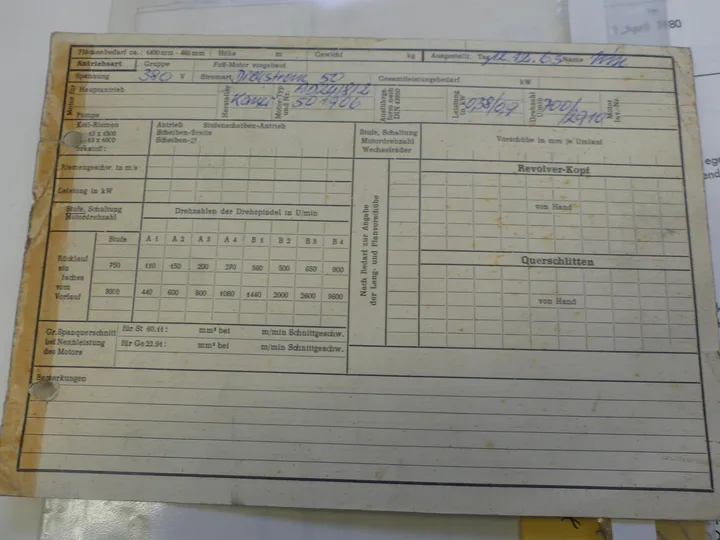 Flächenbedarf ca.: 1400 mm - 460 mm Höhe m Gewicht kg Ausgestellt: Tag 12.12.63 Name
Antriebsart Gruppe Fuß-Motor eingebaut
Spannung 380 V Stromart Drehstrom 50 Gesamtleistungsbedarf kW
Motor für Hauptantrieb
Pumpe
Hersteller Motor-Typ und Nr. 501906
Ausführgs.form nach DIN 42950
Leistung in kW
Drehzahl U/min 700/2910
Motor Inv.-Nr.
Keil-Riemen
13 x 1300
13 x 4000
Antrieb Stufenscheiben-Antrieb
Scheiben-Breite
Scheiben-Ø
Riemengeschw. in m/s
Leistung in kW
Stufe, Schaltung
Motordrehzahl
Drehzahlen der Drehspindel in U/min
Stufe A 1 A 2 A 3 A 4 B 1 B 2 B 3 B 4
750 110 150 200 270 360 500 650 900
3000 440 600 800 1080 1440 2000 2600 3600
Rücklauf
ein
faches
vom
Vorlauf
Gr. Spanquerschnitt
bei Nennleistung
des Motors
für St 60.11: mm² bei m/min Schnittgeschw.
für Ge 22.91: mm² bei m/min Schnittgeschw.
Stufe, Schaltung
Motordrehzahl
Wechselräder
Vorschübe in mm je Umlauf
Revolver-Kopf
von Hand
Querschlitten
von Hand
Nach Bedarf zur Angabe
der Lang- und Planvorschübe
Bemerkungen